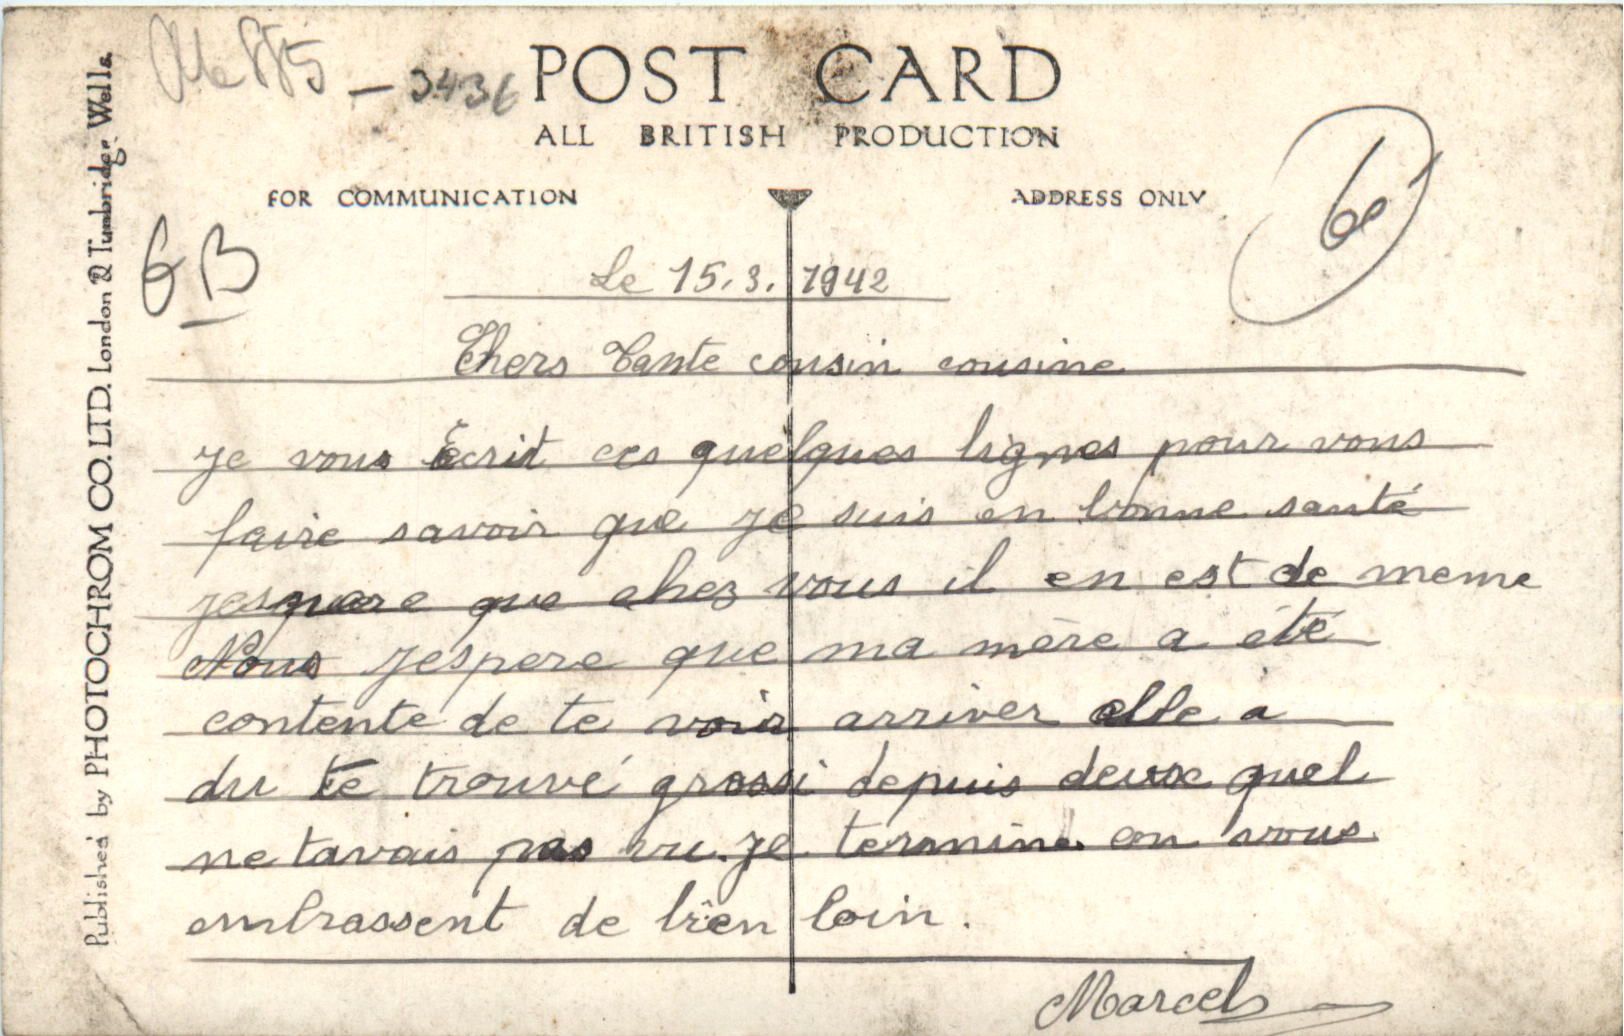 POST CARD
ALL BRITISH PRODUCTION
FOR COMMUNICATION
ADDRESS ONLY
Published by PHOTOCHROM CO. LTD. London & Tunbridge Wells.
- 3436
GB
Le 15.3.1942
Chers Tante cousin cousine
Je vous Ecrit ces quelques lignes pour vous
faire savoir que je suis en bonne santé
jespere que chez vous il en est de meme
Nous jespere que ma mère a été
contente de te voir arriver elle a
du te trouvé grossi depuis deux quel
ne tavais pas vu. je termine en vous
embrassent de bien loin.
Marcel